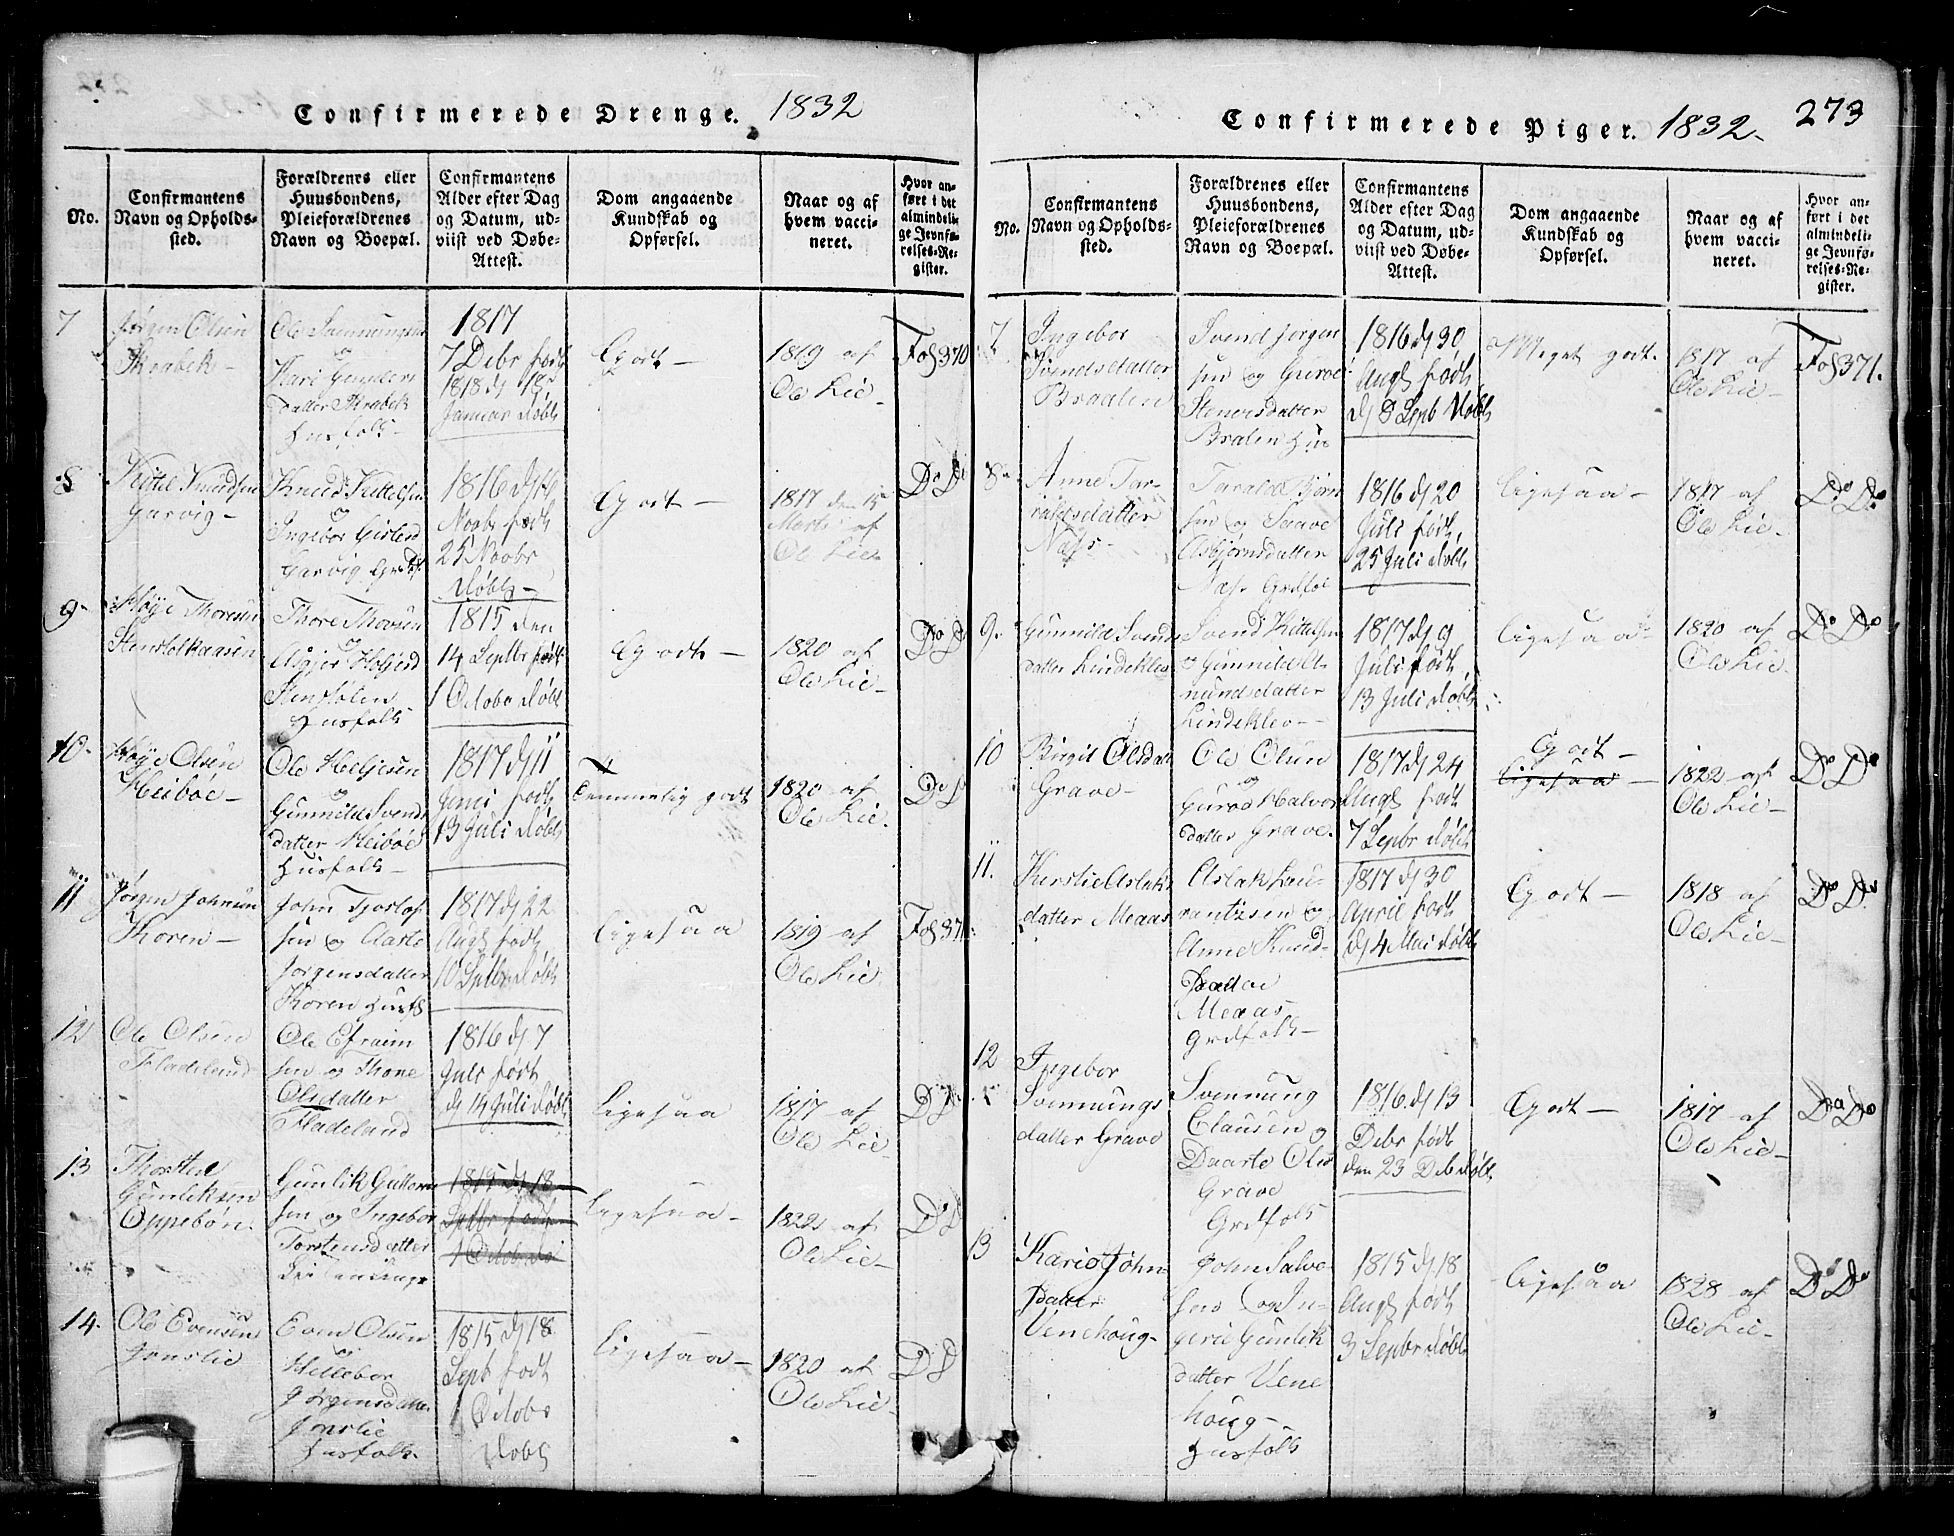 Confirmerede Drenge. 1832
No.
Confirmantens
Navn og Opholds-
sted.
Forældrenes eller
Huusbondens,
Pleieforældrenes
Navn og Boepæl.
Confirmantens
Alder efter Dag
og Datum, ud-
viist ved Døbe-
Attest.
Dom angaaende
Kundskab og
Opførsel.
Naar og af
hvem vacci-
neret.
Hvor an-
ført i det
almindeli-
ge Jevnfø-
relses-Re-
gister.
7
Jørgen Olsen
Skrabek-
Ole Svennungsen
og
Kari Gunders
datter Skrabek
Husfolk-
1817
7 Debr født
1818 d 18
Januar døbt
Godt-
1819 af
Ole Lie-
Fol 370
8
Kittel Knudsen
Garvig-
Knud Kittelsen
og
Ingebor
Garvig
1816 d 16
Novbr født
25 Novbr
døbt-
Godt-
1817 den 15
Marts af
Ole Lie-
Do Do
9-
Høye Thoresen
Thore Thovsen
og
Husfolk
1815 den
14 Septbr født
1 Octobr døbt
Godt-
1820 af
Ole Lie-
Do Do
10-
Høye Olsen
Heibøe-
Ole Heljesen
og
Gunnild Svends
datter Heibøe
Husfolk-
1817 d 11
Juni født
13 Juli døbt
Temmelig godt
1820 af
Ole Lie.
Do Do
11
Jørgen Johnsen
Koren-
John Tjostof
sen og Aaste
Jørgensdatter
Koren Husfk
1817 d 22
Augt født
10 Septbr døbt
Ligesaa
1819 af
Ole Lie.
Fol 371
12
Ole Olsen
Fladeland
Ole Efraim
sen og Thone
Olsdatter
Fladeland
1816 d 7
Juli født
d 14 Juli døbt
Ligesaa
1817 af
Ole Lie-
Do Do
13
Thorsten
Gunleksen
Oppebøn.
Gunlik Guttorm
sen og Ingebor
Torstensdatter
1815 d 18
Septbr født
1 Octobr dø
Ligesaa-
1822 af
Ole Lie-
Do Do
14.
Ole Evensen
Jonslie
Even Olsen
og
Hellebor
Jørgensdatter
Jonslie
Husfolk-
1815 d 18
Sept født
1 Octobr
døbt
Ligesaa-
1820 af
Ole Lie-
Do Do
Confirmerede Piger. 1832- 273
No.
Confirmantens
Navn og Opholds-
sted.
Forældrenes eller
Huusbondens,
Pleieforældrenes
Navn og Boepæl.
Confirmantens
Alder efter Dag
og Datum, ud-
viist ved Døbe-
Attest.
Dom angaaende
Kundskab og
Opførsel.
Naar og af
hvem vacci-
neret.
Hvor an-
ført i det
almindeli-
ge Jevnfø-
relses-Re-
gister.
7
Ingebor
Svendsdatter
Braalen
Svend Jørgen
sen og Guroe
Stenersdatter
Bralen Hus
1816 d 30
Augt født
d 8 Septb døbt
Meget godt.
1817 af
Ole Lie-
Fol 371.
8-
Anne Tar-
raldsdatter
Nass-
Tarald Bjørn
sen og Saave
Asbjørnsdatter
Nas- Grdfol
1816 d 20
Juli født
25 Juli døbt
Ligesaa-
1817 af
Ole Lie-
Do Do
9.
Gunnild Svends
datter Lindeklev
Svend Kittelsen
og Gunnild A
mundsdatter
Lindeklev-
1817 d 9
Juli født
13 Juli døbt
Ligesaa-
1820 af
Ole Lie.
Do Do
10
Birgit Olsdat
Grave-
Ole Olsen
og
Guroe Halvor
datter Grave.
1817 d 24
Augt født
7 Sepbr døbt
Godt-
Ligesaa-
1822 af
Ole Lie-
Do Do
11.
Kirstie Aslaks
datter Meaas
Aslak Lau-
rantsen og
Anne Knud-
datter
Meaas
Grdfolk-
1817 d 30
April født
d 4 Mai døbt
Godt-
1818 af
Ole Lie-
Do Do
12
Ingebor
Svennungs
datter Grave
Svennung
Clausen og
Daarte Ols
Grave
Grdfolk
1816 d 13
Debr født
den 23 Deb døbt
Godt-
1817 af
Ole Lie-
Do Do
13
Karie John
datter
Venehoug-
John Salve-
sen og In-
gerie Gunlik
datter Vene
houg-
Husfolk
1815 d 18
Augt født
3 Sepbr døbt
Ligesaa
1828 af
Ole Lie-
Do Do